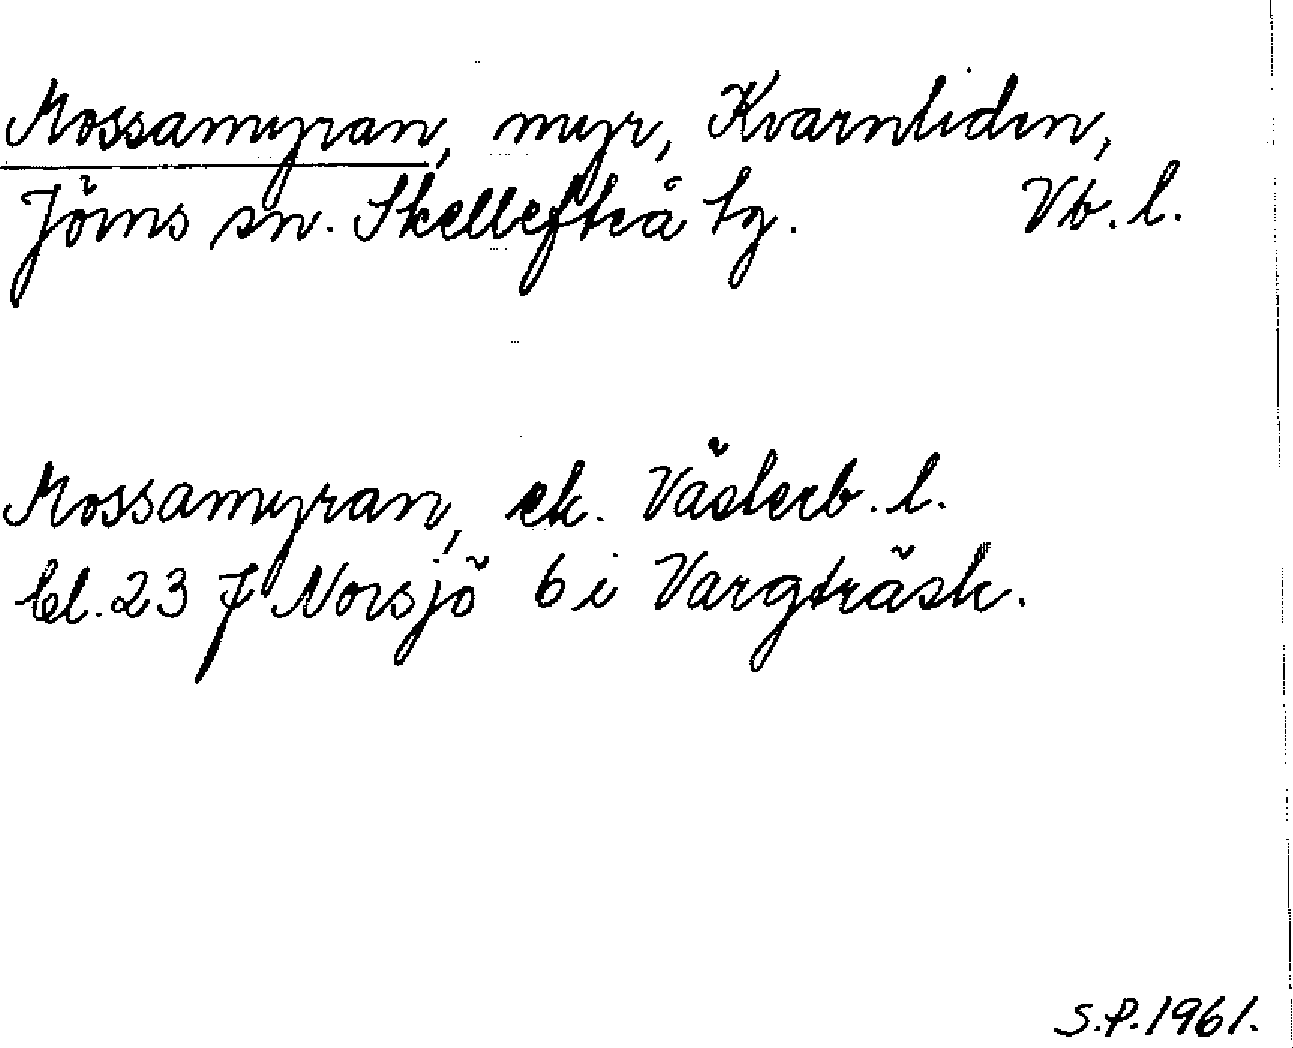 Mossamyran, myr, Kvarnliden,
Jörns sn. Skellefteå tg. Vb. l.
Mossamyran, ek. Västerb. l.
bl. 23 J Norsjö 6 i Vargträsk.
S.P. 1961.